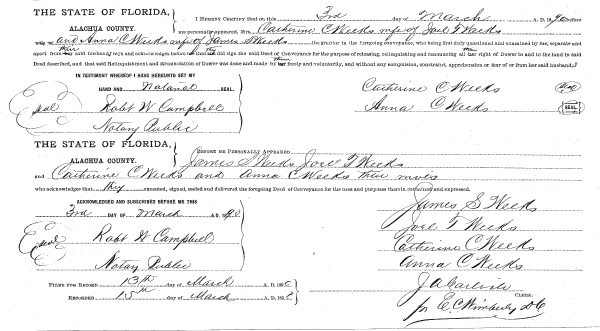 THE STATE OF FLORIDA,
ALACHUA COUNTY.
I HEREBY CERTIFY that on this 3rd day of March A. D. 1890 before
me personally appeared, Mrs. Catherine C Weeks wife of Joel T Weeks
and Anna C Weeks wife of James S Weeks the grantor in the foregoing conveyance, who being first duly questioned and examined by me, separate and
apart from their said husband, say and acknowledges before me that they did sign the said Deed of Conveyance for the purpose of releasing, relinquishing and renouncing all their right of Dower in and to the land in said
Deed described, and that said Relinquishment and Renunciation of Dower was done and made by them freely and voluntarily, and without any compulsion, constraint, apprehension or fear of or from her said husband,
IN TESTIMONY WHEREOF I HAVE HEREUNTO SET MY
HAND AND Notarial SEAL.
Seal Robt W Campbell
Notary Public
Catherine C Weeks Seal
Anna C Weeks SEAL
THE STATE OF FLORIDA,
ALACHUA COUNTY.
BEFORE ME PERSONALLY APPEARED
James S Weeks Joel T Weeks
and Catherine C Weeks and Anna C Weeks their wives
who acknowledges that they executed, signed, sealed and delivered the foregoing Deed of Conveyance for the uses and purposes therein contained and expressed.
ACKNOWLEDGED AND SUBSCRIBED BEFORE ME THIS
3rd DAY OF March A.D. 1890
Seal Robt W Campbell
Notary Public
James S Weeks
Joel T Weeks
Catherine C Weeks
Anna C Weeks
FILED FOR RECORD 13th day of March A. D. 1890
RECORDED 15th day of March A. D. 1890
J A Carlisle
CLERK.
pr E. C. Wimberly DC